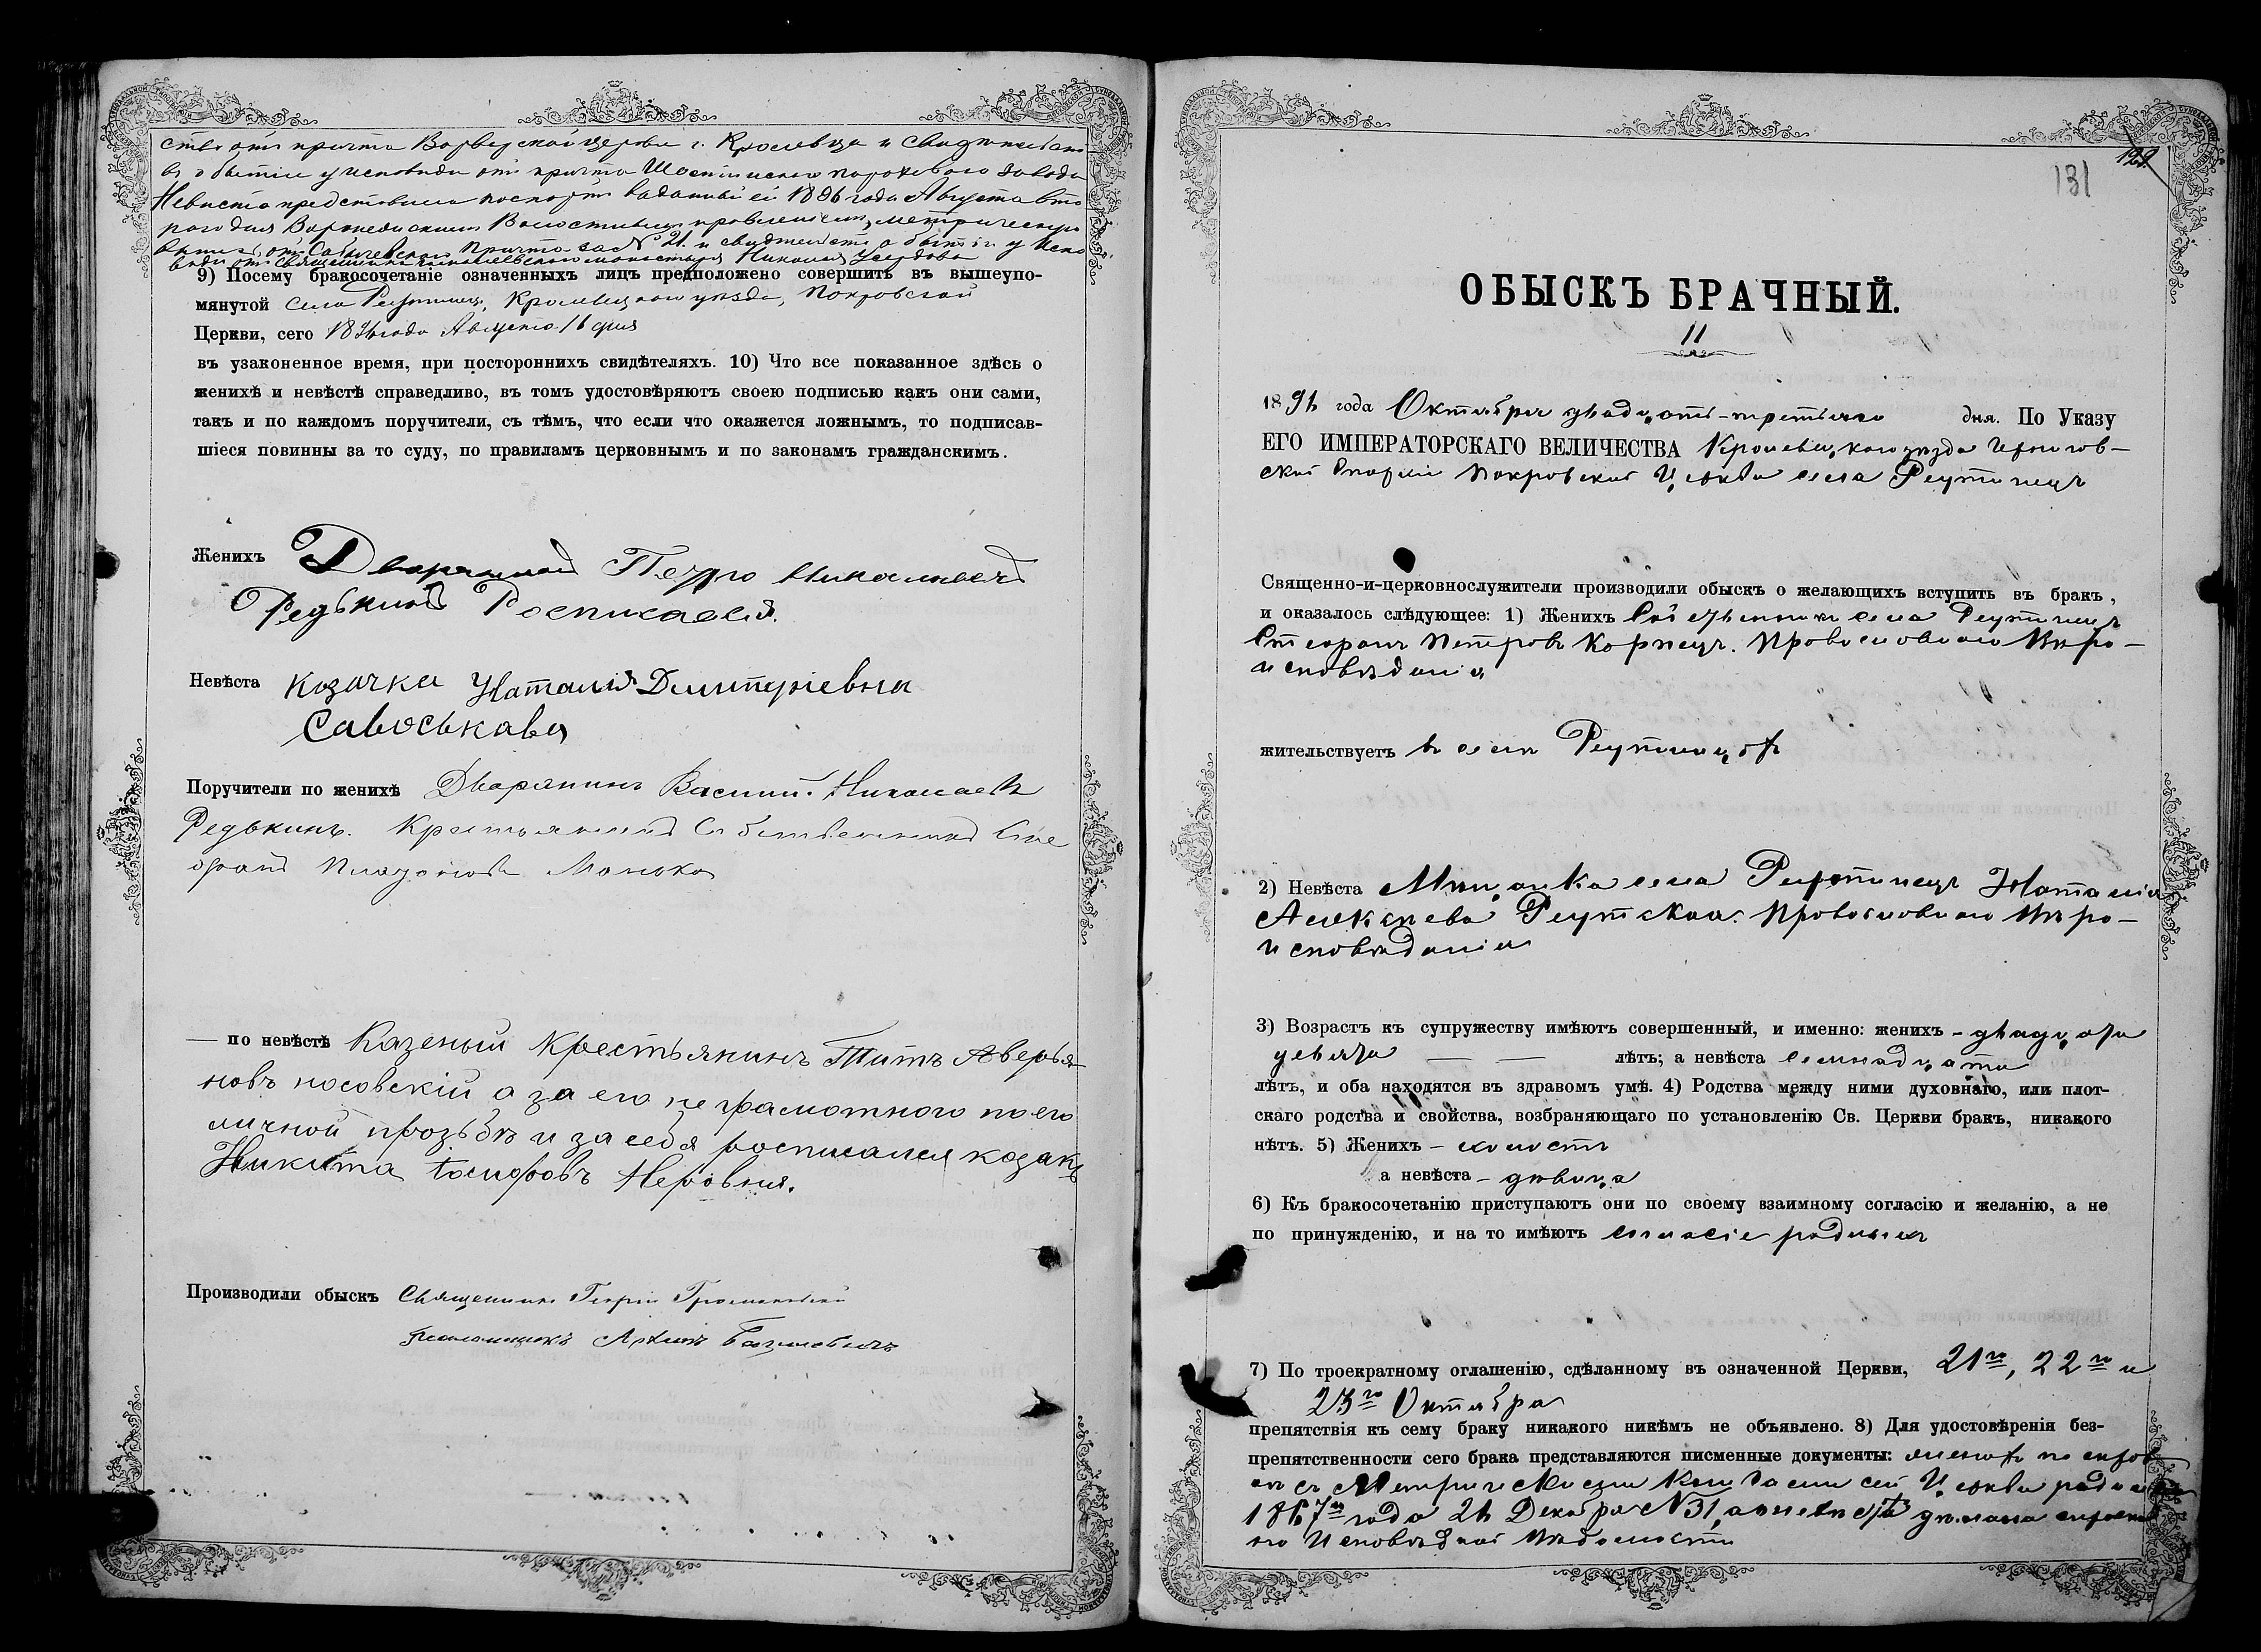 ство отъ причта Варварской церкви г. Кролевца и свидѣтельство
въ о бытіи у исповѣди отъ причта Шостинскаго пороховаго завода
Невѣста представила паспортъ выданный ей 1896 года Августа вто
рого дня Воронежскимъ Волостнымъ правленіемъ, метрическую
выпись отъ причта за № 21 и свидѣтельство о бытіи у испо
вѣди отъ Священника монастыря Николая
9) Посему бракосочетаніе означенныхъ лицъ предположено совершить въ вышеупо-
мянутой села Реутинецъ, Кролевецкаго уѣзда, Покровской
Церкви, сего 1896 года Августа 16 дня
въ узаконенное время, при постороннихъ свидѣтеляхъ. 10) Что все показанное здѣсь о
женихѣ и невѣстѣ справедливо, въ томъ удостовѣряютъ своею подписью какъ они сами,
такъ и по каждомъ поручители, съ тѣмъ, что если что окажется ложнымъ, то подписав-
шіеся повинны за то суду, по правиламъ церковнымъ и по законамъ гражданскимъ.
Женихъ Дворянинъ Петро Николаевъ
Редькинъ Росписался.
Невѣста козачка Наталія Димитріевна
Савоськова
Поручители по женихѣ Дворянинъ Василій Николаевъ
Редькинъ. Крестьянинъ Собственникъ Сте
фанъ Платоновъ Манько
— по невѣстѣ Казеный Крестьянинъ Титъ Аверья
новъ носовскій а за его не грамотного по его
личной прозьбѣ и за себя росписался козакъ
Никита Іосифовъ Неровня.
Производили обыскъ Священникъ Георгій Громаковскій
Псаломщикъ Архипъ Базилевичъ
131
129
ОБЫСКЪ БРАЧНЫЙ.
11
1896 года Октября двадцать-третьяго дня. По Указу
ЕГО ИМПЕРАТОРСКАГО ВЕЛИЧЕСТВА Кролевецкаго уѣзда Чернигов-
ской Епархіи Покровской Церкви села Реутинецъ
Священно-и-церковнослужители производили обыскъ о желающихъ вступить въ бракъ,
и оказалось слѣдующее: 1) Женихъ Собственникъ села Реутинецъ
Стефанъ Петровъ Корнецъ. Православнаго Вѣро-
исповѣданія
жительствуетъ въ селѣ Реутинцахъ
2) Невѣста Мѣщанка села Реутинецъ Наталія
Алексѣева Реутская. Православнаго Вѣро-
исповѣданія
3) Возрастъ къ супружеству имѣютъ совершенный, и именно: женихъ – двадцати
девяти — — лѣтъ; а невѣста семнадцати
лѣтъ, и оба находятся въ здравомъ умѣ. 4) Родства между ними духовнаго, или плот-
скаго родства и свойства, возбраняющаго по установленію Св. Церкви бракъ, никакого
нѣтъ. 5) Женихъ – холостъ
а невѣста – дѣвица
6) Къ бракосочетанію приступаютъ они по своему взаимному согласію и желанію, а не
по принужденію, и на то имѣютъ согласіе родныхъ
7) По троекратному оглашенію, сдѣланному въ означенной Церкви, 21го, 22го и
23го Октября
препятствія къ сему браку никакого никѣмъ не объявлено. 8) Для удостовѣренія без-
препятственности сего брака представляются писменные документы: женихъ по справ
кѣ съ Метрическими Книгами сей Церкви родился
1867го года 26 Декабря №31, а о невѣстѣ дѣлана справка
по Исповѣдной Вѣдомости